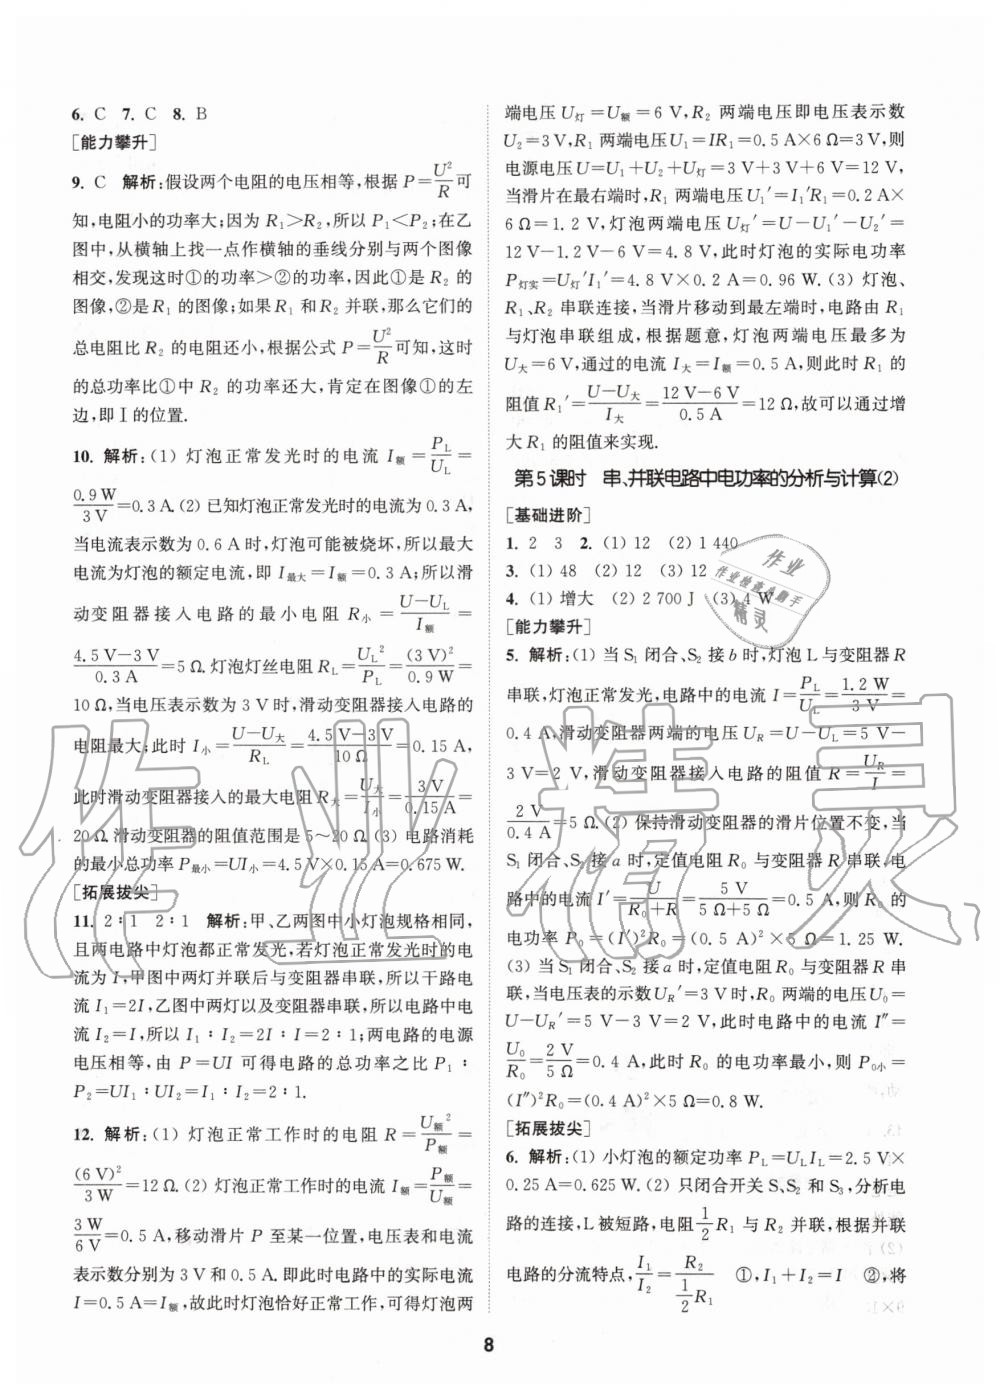 6. C 7. C 8. B
[能力攀升]
9. C 解析:假设两个电阻的电压相等,根据 P=U²/R 可
知,电阻小的功率大;因为 R₁>R₂,所以 P₁<P₂;在乙
图中,从横轴上找一点作横轴的垂线分别与两个图像
相交,发现这时①的功率>②的功率,因此①是 R₂ 的
图像,②是 R₁ 的图像;如果 R₁ 和 R₂ 并联,那么它们的
总电阻比 R₂ 的电阻还小,根据公式 P=U²/R 可知,这时
的总功率比①中 R₂ 的功率还大,肯定在图像①的左
边,即Ⅰ的位置.
10. 解析:(1) 灯泡正常发光时的电流 I额=P_L/U_L=
0.9 W/3 V=0.3 A.(2) 已知灯泡正常发光时的电流为 0.3 A,
当电流表示数为 0.6 A时,灯泡可能被烧坏,所以最大
电流为灯泡的额定电流,即 I最大=I额=0.3 A;所以滑
动变阻器接入电路的最小电阻 R小=(U-U_L)/I额=
(4.5 V-3 V)/0.3 A=5 Ω.灯泡灯丝电阻 R_L=U_L²/P_L=(3 V)²/0.9 W=
10 Ω,当电压表示数为 3 V时,滑动变阻器接入电路的
电阻最大;此时 I小=(U-U大)/R_L=(4.5 V-3 V)/10 Ω=0.15 A,
此时滑动变阻器接入的最大电阻 R大=U大/I小=3 V/0.15 A=
20 Ω.滑动变阻器的阻值范围是 5~20 Ω.(3) 电路消耗
的最小总功率 P最小=UI小=4.5 V×0.15 A=0.675 W.
[拓展拔尖]
11. 2∶1 2∶1 解析:甲、乙两图中小灯泡规格相同,
且两电路中灯泡都正常发光,若灯泡正常发光时的电
流为 I,甲图中两灯并联后与变阻器串联,所以干路电
流 I₁=2I,乙图中两灯以及变阻器串联,所以电路中电
流 I₂=I,所以 I₁∶I₂=2I∶I=2∶1;两电路的电源
电压相等,由 P=UI 可得电路的总功率之比 P₁∶
P₂=UI₁∶UI₂=I₁∶I₂=2∶1.
12. 解析:(1) 灯泡正常工作时的电阻 R=U额²/P额=
(6 V)²/3 W=12 Ω.(2) 灯泡正常工作时的电流 I额=P额/U额=
3 W/6 V=0.5 A,移动滑片 P 至某一位置,电压表和电流
表示数分别为 3 V和 0.5 A.即此时电路中的实际电流
I=0.5 A=I额,故此时灯泡恰好正常工作,可得灯泡两
端电压 U灯=U额=6 V,R₂ 两端电压即电压表示数
U₂=3 V,R₁ 两端电压U₁=IR₁=0.5 A×6 Ω=3 V,则
电源电压 U=U₁+U₂+U灯=3 V+3 V+6 V=12 V,
当滑片在最右端时,R₁ 两端电压 U₁′=I₁′R₁=0.2 A×
6 Ω=1.2 V,灯泡两端电压 U灯′=U-U₁′-U₂′=
12 V-1.2 V-6 V=4.8 V,此时灯泡的实际电功率
P灯实=U灯′I₁′=4.8 V×0.2 A=0.96 W.(3) 灯泡、
R₁、R₂ 串联连接,当滑片移动到最左端时,电路由 R₁
与灯泡串联组成,根据题意,灯泡两端电压最多为
U大=6 V,通过的电流 I大=I额=0.5 A,则此时 R₁ 的
阻值 R₁′=(U-U大)/I大=(12 V-6 V)/0.5 A=12 Ω,故可以通过增
大 R₁ 的阻值来实现.
第5课时 串、并联电路中电功率的分析与计算(2)
[基础进阶]
1. 2 3 2. (1) 12 (2) 1 440
3. (1) 48 (2) 12 (3) 12
4. (1) 增大 (2) 2 700 J (3) 4 W
[能力攀升]
5. 解析:(1) 当 S₁ 闭合、S₂ 接 b 时,灯泡 L与变阻器 R
串联,灯泡正常发光,电路中的电流 I=P_L/U_L=1.2 W/3 V=
0.4 A,滑动变阻器两端的电压 U_R=U-U_L=5 V-
3 V=2 V,滑动变阻器接入电路的阻值 R=U_R/I=
2 V/0.4 A=5 Ω.(2) 保持滑动变阻器的滑片位置不变,当
S₁ 闭合、S₂ 接 a 时,定值电阻 R₀ 与变阻器 R 串联,电
路中的电流 I′=U/(R₀+R)=5 V/(5 Ω+5 Ω)=0.5 A,则 R₀ 的
电功率 P₀=(I′)²R₀=(0.5 A)²×5 Ω=1.25 W.
(3) 当 S₁ 闭合、S₂ 接 a 时,定值电阻 R₀ 与变阻器 R 串
联,当电压表的示数U_R′=3 V时,R₀ 两端的电压U₀=
U-U_R′=5 V-3 V=2 V,此时电路中的电流 I″=
U₀/R₀=2 V/5 Ω=0.4 A,此时 R₀ 的电功率最小,则 P₀小=
(I″)²R₀=(0.4 A)²×5 Ω=0.8 W.
[拓展拔尖]
6. 解析:(1) 小灯泡的额定功率 P_L=U_LI_L=2.5 V×
0.25 A=0.625 W.(2) 只闭合开关 S、S₂ 和 S₃,分析电
路的连接,L被短路,电阻 1/2 R₁ 与 R₂ 并联,根据并联
电路的分流特点,I₁/I₂=R₂/(1/2 R₁) ①,I₁+I₂=I ②,将
8
作业
作业检查小助手
精灵
作业精灵